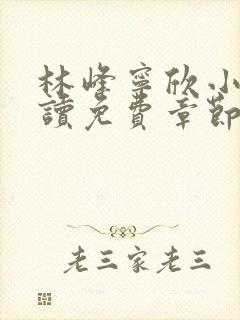 林峰寧欣小
讀免費章節
老三家老三